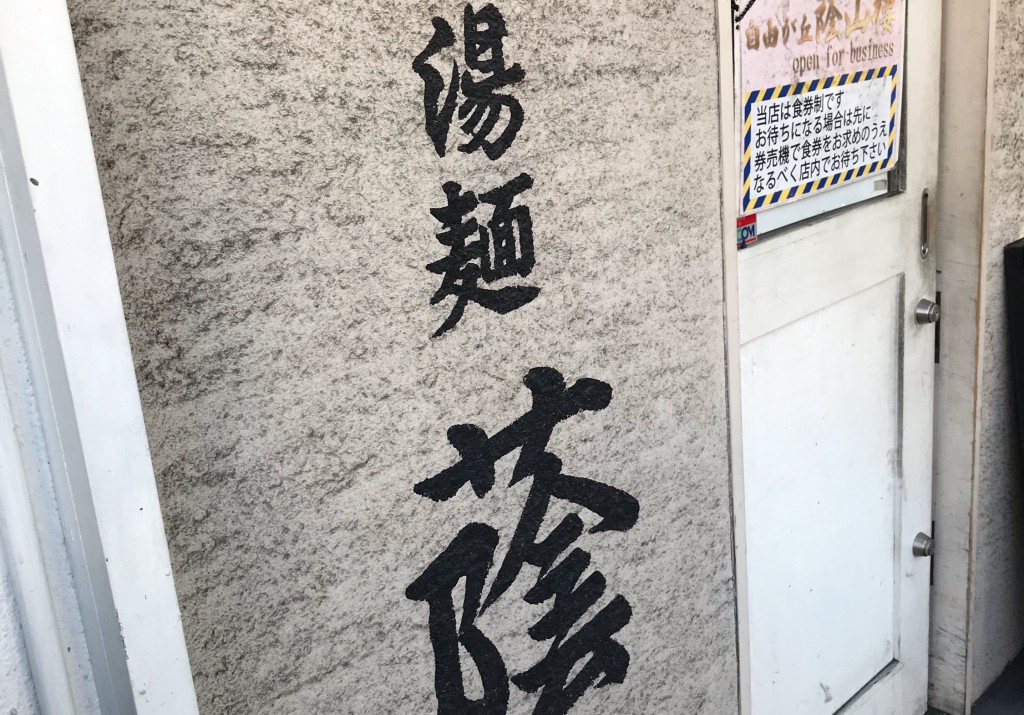 湯麺
蔭
自由が丘 陰山樓
open for business
当店は食券制です
お待ちになる場合は先に
券売機で食券をお求めのうえ
なるべく店内でお待ち下さい
COM